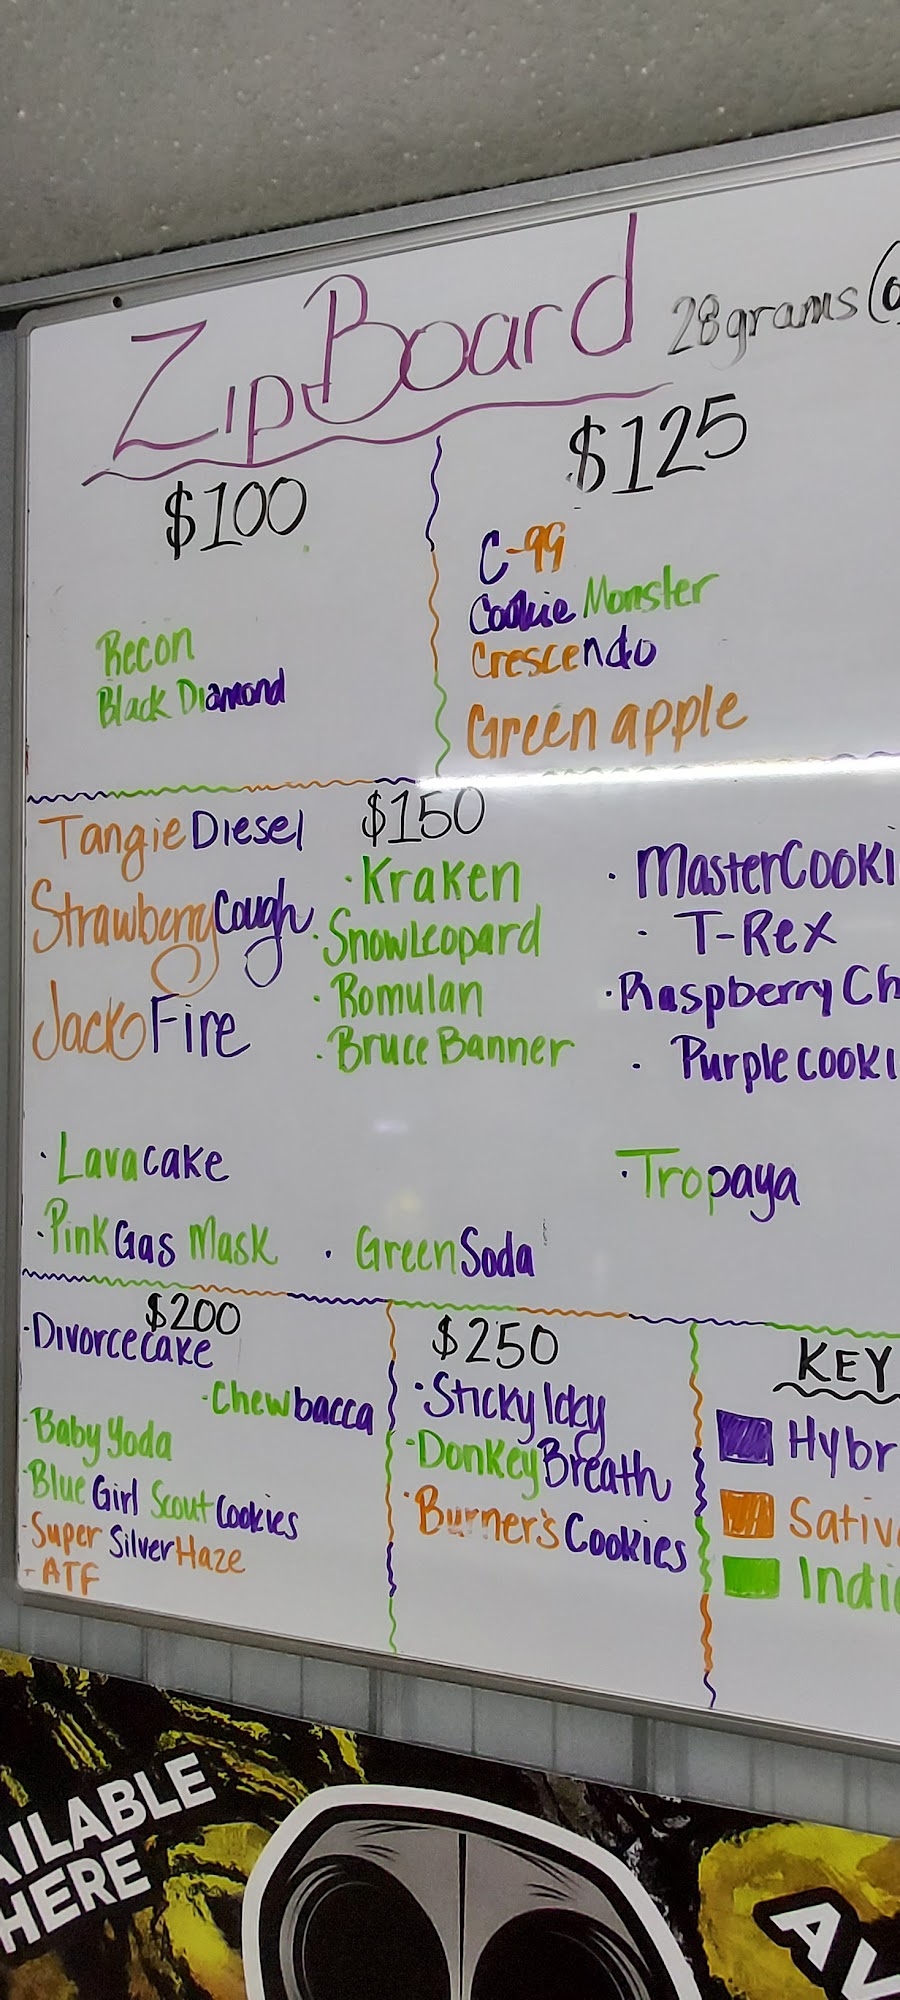 Zip Board 28grams
$100
Recon
Black Diamond
$125
C-99
Cookie Monster
Crescendo
Green apple
$150
Tangie Diesel
Strawberry Cough
Jack Fire
· Kraken
· SnowLeopard
· Romulan
· Bruce Banner
· MasterCooki
· T-Rex
· Raspberry Ch
· Purple cooki
· Lavacake
· Pink Gas Mask
· Green Soda
· Tropaya
$200
- Divorce cake
- Chewbacca
- Baby Yoda
- Blue Girl Scout Cookies
- Super Silver Haze
- ATF
$250
· Sticky Icky
· Donkey Breath
· Burner's Cookies
KEY
Hybr
Sativ
Indi
AILABLE
HERE
AV